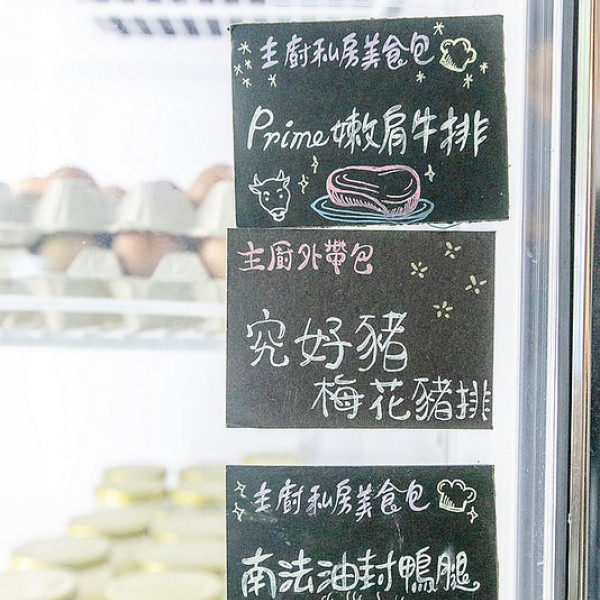 主廚私房美食包
Prime嫩肩牛排
主廚外帶包
究好豬
梅花豬排
主廚私房美食包
南法油封鴨腿